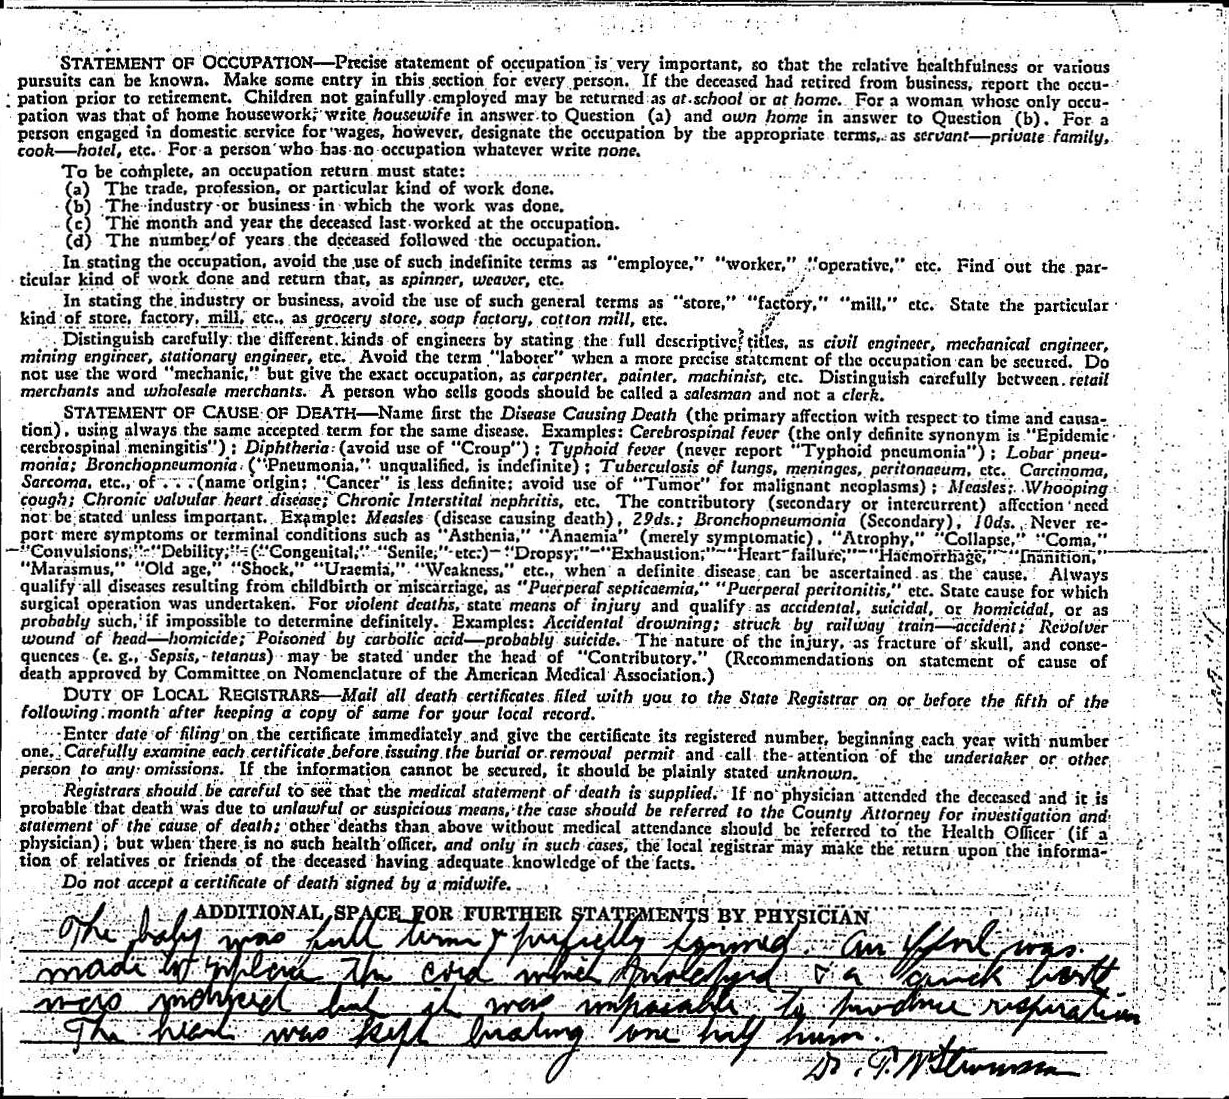 STATEMENT OF OCCUPATION—Precise statement of occupation is very important, so that the relative healthfulness or various
pursuits can be known. Make some entry in this section for every person. If the deceased had retired from business, report the occu-
pation prior to retirement. Children not gainfully employed may be returned as at school or at home. For a woman whose only occu-
pation was that of home housework, write housewife in answer to Question (a) and own home in answer to Question (b). For a
person engaged in domestic service for wages, however, designate the occupation by the appropriate terms, as servant—private family,
cook—hotel, etc. For a person who has no occupation whatever write none.
To be complete, an occupation return must state:
(a) The trade, profession, or particular kind of work done.
(b) The industry or business in which the work was done.
(c) The month and year the deceased last worked at the occupation.
(d) The number of years the deceased followed the occupation.
In stating the occupation, avoid the use of such indefinite terms as "employee," "worker," "operative," etc. Find out the par-
ticular kind of work done and return that, as spinner, weaver, etc.
In stating the industry or business, avoid the use of such general terms as "store," "factory," "mill," etc. State the particular
kind of store, factory, mill, etc., as grocery store, soap factory, cotton mill, etc.
Distinguish carefully the different kinds of engineers by stating the full descriptive titles, as civil engineer, mechanical engineer,
mining engineer, stationary engineer, etc. Avoid the term "laborer" when a more precise statement of the occupation can be secured. Do
not use the word "mechanic," but give the exact occupation, as carpenter, painter, machinist, etc. Distinguish carefully between retail
merchants and wholesale merchants. A person who sells goods should be called a salesman and not a clerk.
STATEMENT OF CAUSE OF DEATH—Name first the Disease Causing Death (the primary affection with respect to time and causa-
tion), using always the same accepted term for the same disease. Examples: Cerebrospinal fever (the only definite synonym is "Epidemic
cerebrospinal meningitis"); Diphtheria (avoid use of "Croup"); Typhoid fever (never report "Typhoid pneumonia"); Lobar pneu-
monia; Bronchopneumonia ("Pneumonia," unqualified, is indefinite); Tuberculosis of lungs, meninges, peritonaeum, etc. Carcinoma,
Sarcoma, etc., of . . . (name origin; "Cancer" is less definite; avoid use of "Tumor" for malignant neoplasms); Measles; Whooping
cough; Chronic valvular heart disease; Chronic Interstital nephritis, etc. The contributory (secondary or intercurrent) affection need
not be stated unless important. Example: Measles (disease causing death), 29ds.; Bronchopneumonia (Secondary), 10ds. Never re-
port mere symptoms or terminal conditions such as "Asthenia," "Anaemia" (merely symptomatic), "Atrophy," "Collapse," "Coma,"
"Convulsions," "Debility," ("Congenital," "Senile," etc.) "Dropsy," "Exhaustion," "Heart failure," "Haemorrhage," "Inanition,"
"Marasmus," "Old age," "Shock," "Uraemia," "Weakness," etc., when a definite disease can be ascertained as the cause. Always
qualify all diseases resulting from childbirth or miscarriage, as "Puerperal septicaemia," "Puerperal peritonitis," etc. State cause for which
surgical operation was undertaken. For violent deaths, state means of injury and qualify as accidental, suicidal, or homicidal, or as
probably such, if impossible to determine definitely. Examples: Accidental drowning; struck by railway train—accident; Revolver
wound of head—homicide; Poisoned by carbolic acid—probably suicide. The nature of the injury, as fracture of skull, and conse-
quences (e. g., Sepsis, tetanus) may be stated under the head of "Contributory." (Recommendations on statement of cause of
death approved by Committee on Nomenclature of the American Medical Association.)
DUTY OF LOCAL REGISTRARS—Mail all death certificates filed with you to the State Registrar on or before the fifth of the
following month after keeping a copy of same for your local record.
Enter date of filing on the certificate immediately and give the certificate its registered number, beginning each year with number
one. Carefully examine each certificate before issuing the burial or removal permit and call the attention of the undertaker or other
person to any omissions. If the information cannot be secured, it should be plainly stated unknown.
Registrars should be careful to see that the medical statement of death is supplied. If no physician attended the deceased and it is
probable that death was due to unlawful or suspicious means, the case should be referred to the County Attorney for investigation and
statement of the cause of death; other deaths than above without medical attendance should be referred to the Health Officer (if a
physician); but when there is no such health officer, and only in such cases, the local registrar may make the return upon the informa-
tion of relatives or friends of the deceased having adequate knowledge of the facts.
Do not accept a certificate of death signed by a midwife.
ADDITIONAL SPACE FOR FURTHER STATEMENTS BY PHYSICIAN
The baby was full term & perfectly formed. An effort was
made to replace the cord which prolapsed & a quick birth
was but it was impossible to produce respiration
The heart was kept beating one half hour.
Dr. T. N